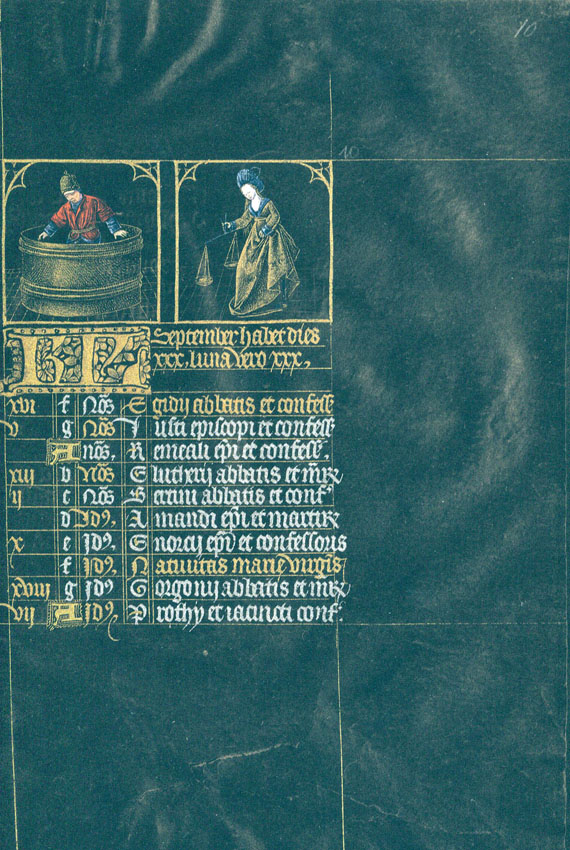 10
10
KL September habet dies
xxx. luna vero xxx,
xvi f Nōs Egidij abbatis et confess
v g Nōs Iusti episcopi et confess
A nōs, Remcali ep̄i et confess,
xiii b Nōs Elutherij abbatis et m̄r
ij c Nōs Bertini abbatis et conf
d Jdꝰ, Amandi ep̄i et martir
x e Jdꝰ, Enorcij ep̄i et confessoris
f Jdꝰ, Natiuitas marie virgīs
xviii g Jdꝰ Gorgonij abbatis et mr
vij A Jdꝰ, Prothy et iacincti conf